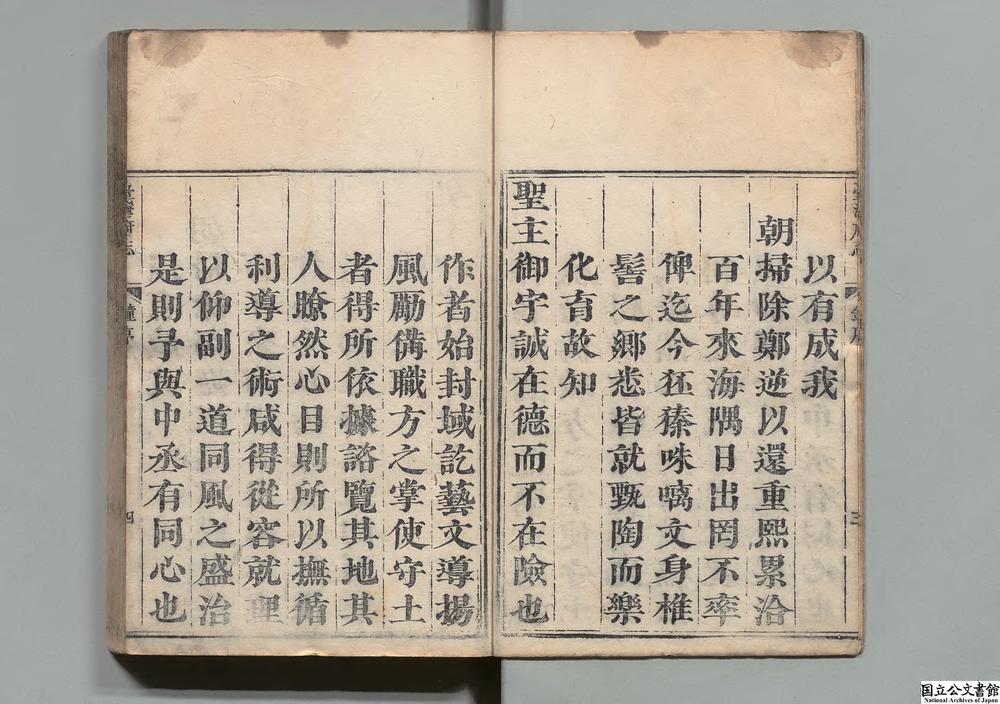 以有成我
朝掃除鄭逆以還重熙累洽
百年來海隅日出罔不率
俾迄今狉獉咮㗿文身椎
髻之鄉悉皆就甄陶而樂
化育故知
聖主御宇誠在德而不在險也
作者始封域訖藝文導揚
風勵備職方之掌使守土
者得所依據諮覽其地其
人瞭然心目則所以撫循
利導之術咸得從容就理
以仰副一道同風之盛治
是則予與中丞有同心也
臺灣府志
鐘序
四
国立公文書館
National Archives of Japan